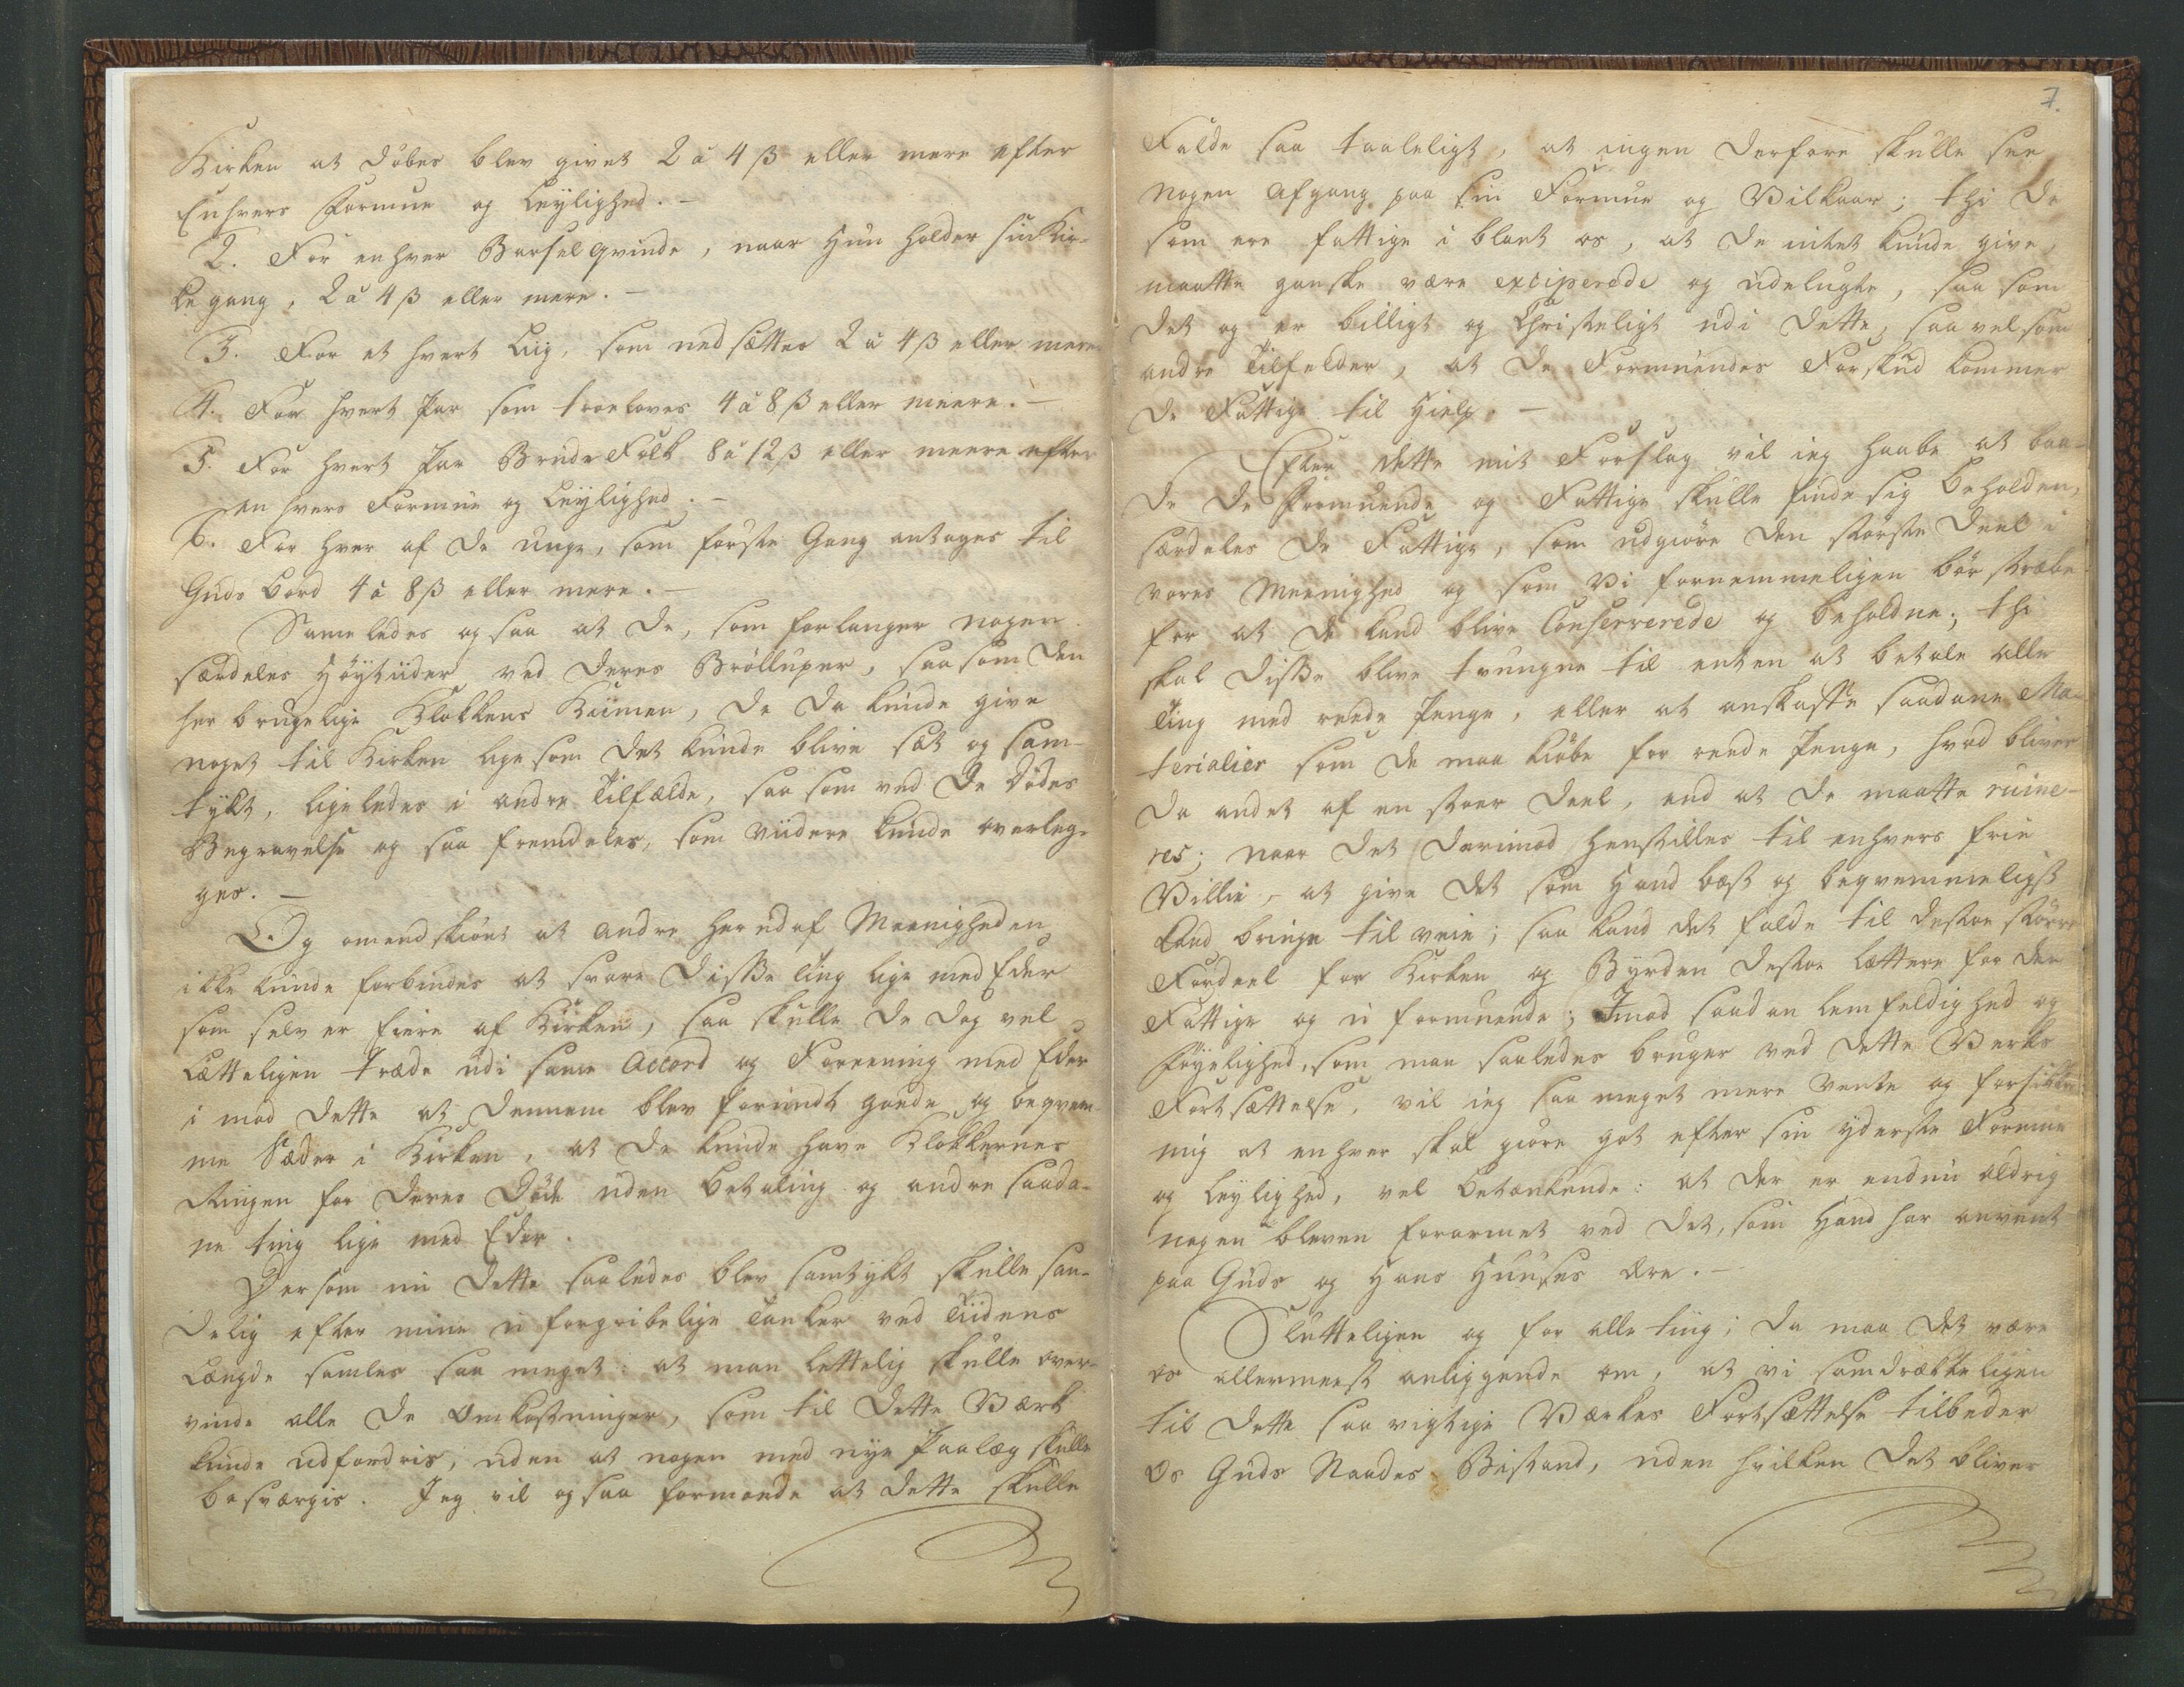 Kirken at døbes blev givet 2 à 4 ß eller mere efter
Enhvers Formue og Leylighed. –
2. For enhver Barselqvinde, naar Hun holder sin Kir-
ke gang, 2 à 4 ß eller mere. –
3. For et hvert Liig, som nedsættes 2 à 4 ß eller mere.
4. For hvert Par som troeloves 4 à 8 ß eller meere. –
5. For hvert Par Brude Folk 8 à 12 ß eller meere efter
en hvers Formue og Leylighed. –
6. For hver af de unge, som første Gang antages til
Guds bord 4 à 8 ß eller mere. –
Sameledes og saa at de, som forlanger nogen
særdeles Höytiider ved deres Bröllupper, saa som den
her brugelige Klokkens Kiimen, de da kunde give
noget til Kirken lige som det kunde blive sat og sam-
tykt, ligeledes i andre Tilfælde, saa som ved de dödes
Begravelse og saa fremdeles, som viidere kunde overleg-
ges. –
Og omendskiönt at andre herudaf Meenigheden
ikke kunde forbindes at svare disse ting lige med Eder
som selv er Eiere af Kirken, saa skulle de dog vel
Lætteligen træde udi same Accord og Foreening med Eder
i mod dette at dennem blev forundt goede og beqvem-
me Sæder i Kirken, at de kunde have Klokkernes
Ringen for deres Döde uden betaling og andre saada-
ne ting lige med Eder.
Dersom nu dette saaledes blev samtykt skulle saa-
delig efter mine u forgribelige tanker ved Tiidens
Længde samles saa meget: at man lettelig skulle over-
vinde alle de omkostninger, som til dette Værk
kunde udfordris, uden at nogen med nye Paalæg skulle
besværgis. Jeg vil og saa formoede at dette skulle
7.
Falde saa taaleligt, at ingen derfore skulle see
nogen afgang paa sin Formue og Vilkaar; thi de
som ere fattige i blant os, at de intet kunde give,
maatte ganske være exciperede og udelugte, saa som
det og er billigt og Christeligt udi dette, saa vel som
andre Tilfelder, at de Formuendes Forskud kommer
de Fattige til Hielp. –
Efter dette mit Forslag vil ieg haabe at baa-
de de Formuende og Fattige skulle finde sig beholden,
særdeles de Fattige, som udgiøre den störste deel i
vores Meenighed og som vi fornemmeligen bör stræbe
for at de kand blive Conserverede og beholdne; thi
skal disse blive tvungne til enten at betale alle
ting med reede Penge, eller at anskaffe saadane Ma-
terialier som de maa kiöbe for reede Penge, hvad bliver
da andet af en stoer deel, end at de maatte ruine-
res; naar det derimod henstilles til enhvers frie
Villie, at give det som Hand bæst og beqvemmeligst
kand bringe til veie; saa kand det falde til desto störr
Fordeel for Kirken og Byrden destoe lættere for den
Fattige og u formuende; Imod saadan lemfeldighed og
Föyelighed, som man saaledes bruger ved dette Verks
Fortsættelse, vil ieg saa meget mere vente og forsikkre
mig at enhver skal giöre got efter sin yderste Formue
og Leylighed, vel betænkende: at der er endnu aldrig
nogen bleven forarmet ved det, som Hand har anvent
paa Guds og Hans Huuses ære. –
Slutteligen og for alle ting; da maa det være
os allermeest anliggende om, at vi samdrækteligen
til dette saa vigtige Værkes Fortsættelse tilbeder
os Guds Naades Bistand, uden hvilken det bliver